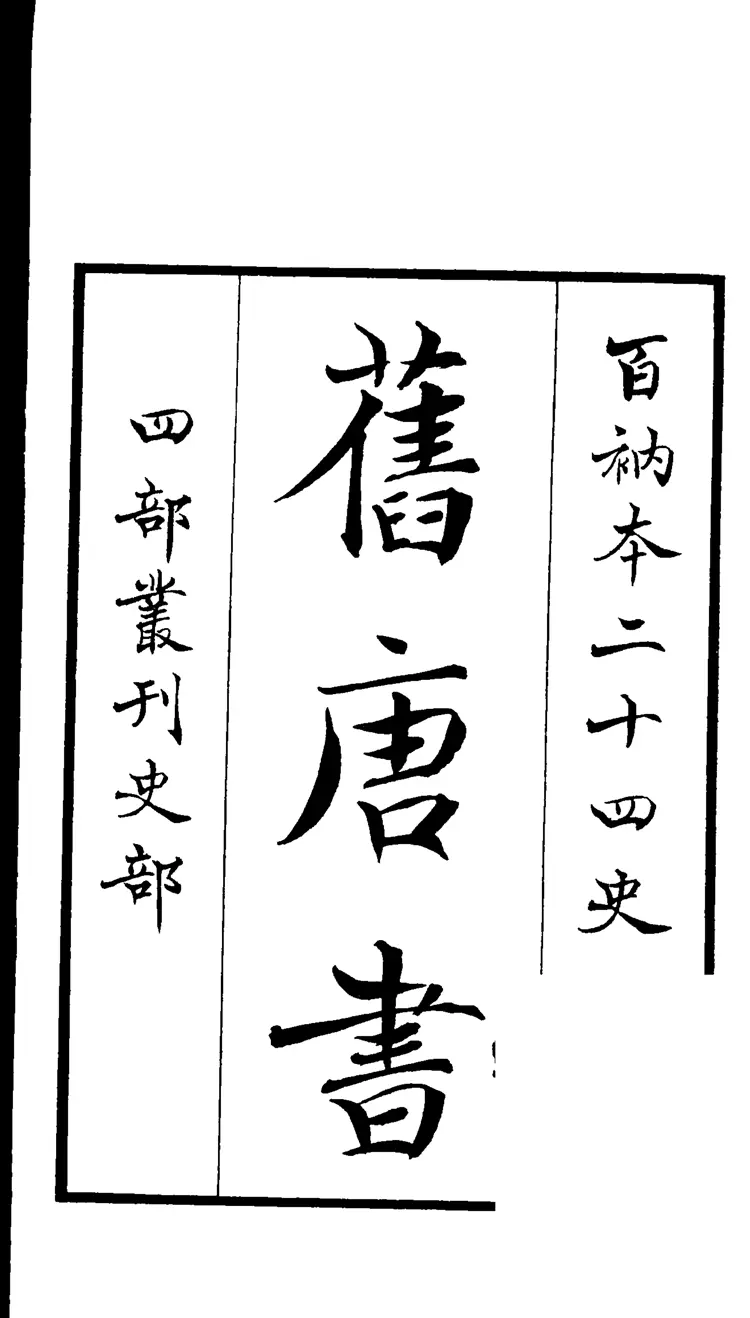 百衲本二十四史
舊唐書
四部叢刊史部